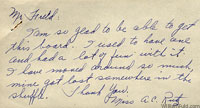 My Friend:
I am so glad to be able to get
this board. I used to have one
and had a lot of fun with it.
I have moved around so much,
mine got lost somewhere in the
shuffle. Thank you.
Miss A.C.